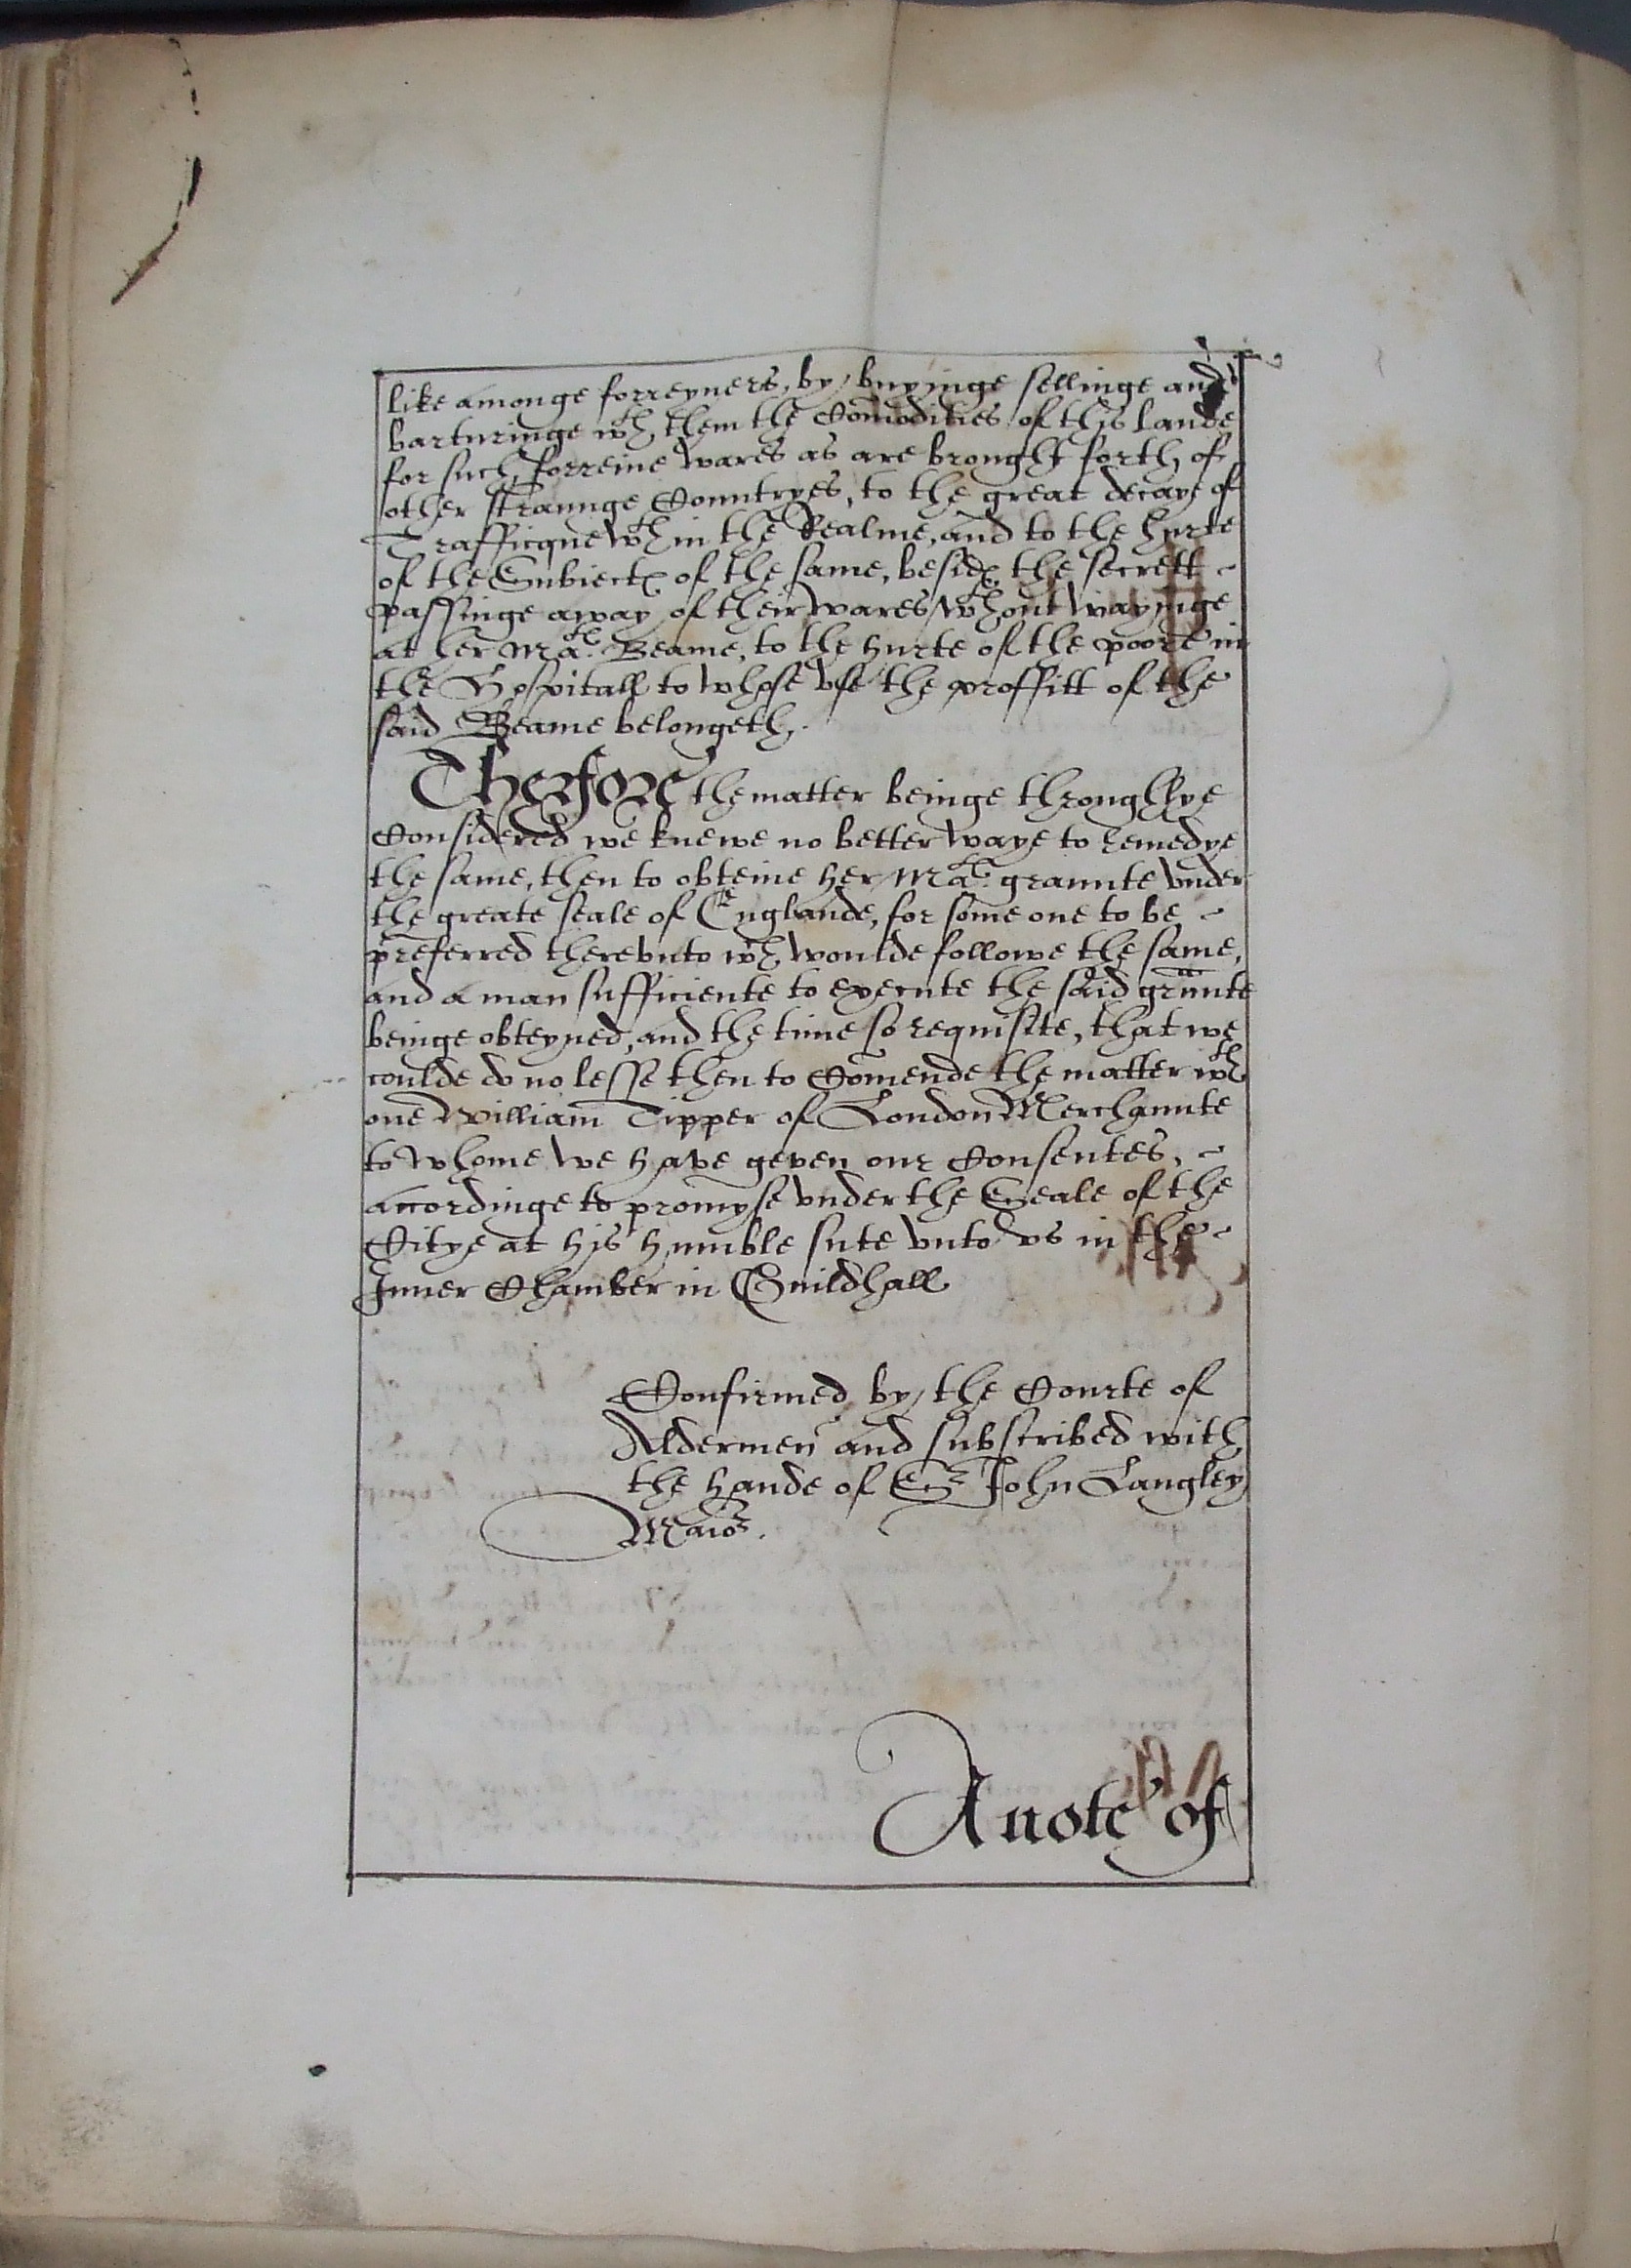 like amonge forreyners, by buyinge sellinge and
barturinge wth them the Comodities of this lande
for such forreine wares as are brought forth of
other straunge Countryes, to the great decaye of
Trafficque wth in the Realme, and to the hurte
of the Subiectes of the same, besides the secrett
passinge away of their wares wthout wayinge
at her Matie Beame, to the hurte of the poore in
the Hospitall to whose vse the proffitt of the
said Beame belongeth.
Therfore the matter beinge throughlye
Considered we knewe no better waye to remedye
the same, then to obteine her Matie graunte vnder
the greate seale of Englande, for some one to be
preferred therevnto wch woulde followe the same,
and a man sufficiente to execute the said graunte
beinge obteyned, and the time so requisite, that we
coulde do no lesse then to Comende the matter wth
one William Tipper of London Merchaunte
to whome we have geven our Consentes,
acordinge to promyse vnder the Seale of the
Citye at his humble sute vnto vs in the
Inner Chamber in Guildhall
Confirmed by the Courte of
Aldermen and subscribed with
the hande of Sr John Langley
Maior.
A note of